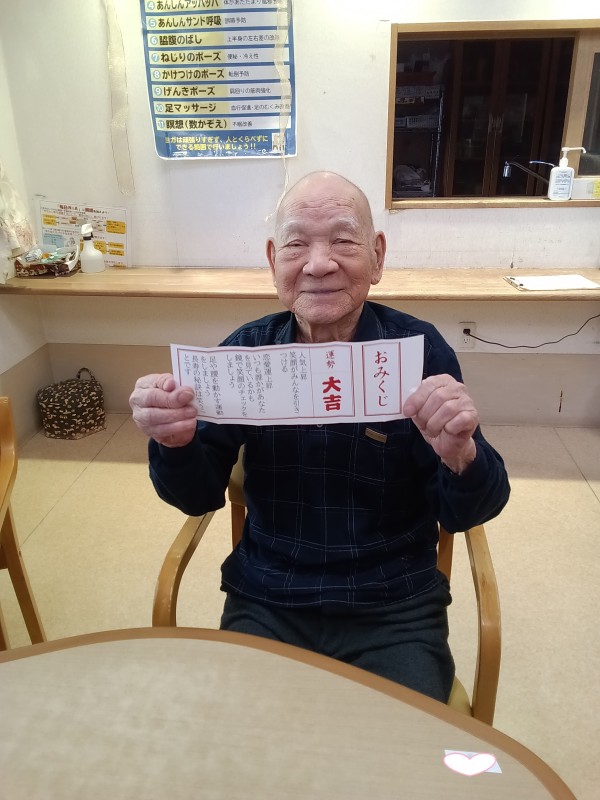 ④あんしんアッパッパ
⑤あんしんサンド呼吸 誤嚥予防
⑥脇腹のばし 上半身の左右差の改善
⑦ねじりのポーズ 便秘・冷え性
⑧かけつけのポーズ 転倒予防
⑨げんきポーズ 肩回りの筋肉強化
⑩足マッサージ
⑪瞑想（数かぞえ） 不眠改善
ヨガは頑張りすぎず、人とくらべずに
できる範囲で行いましょう!!
おみくじ
運勢 大吉
人気上昇
笑顔がみんなを引き
つける
恋愛運上昇
いつも誰かがあなた
を見ているかも
鏡で笑顔のチェックを
しましょう
足や腰を動かす運動
をしましょう
長寿の秘訣は笑うこ
とです